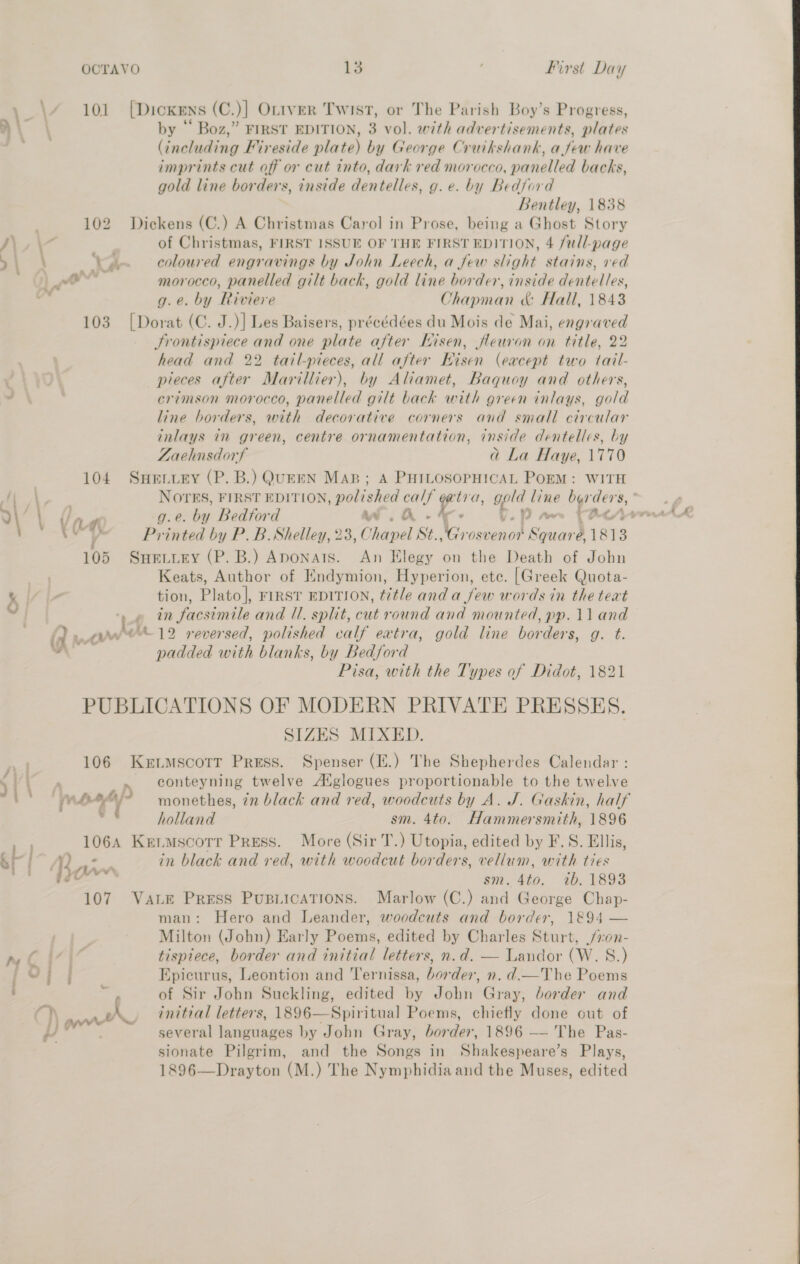 OCTAVO 13 First Day
101 [Dickens (C.)] Oliver Twist, or The Parish Boy's Progress,
by “Boz,” FIRST EDITION, 3 vol. with advertisements, plates
(including Fireside plate) by George Cruikshank, a few have
imprints cut off or cut into, dark red morocco, panelled backs,
gold line borders, inside dentelles, g. e. by Bedford
Bentley, 1838
102 Dickens (C.) A Christmas Carol in Prose, being a Ghost Story
of Christmas, FIRST ISSUE OF THE FIRST EDITION, 4 full-page
coloured engravings by John Leech, a few slight stains, red
morocco, panelled gilt back, gold line border, inside dentelles,
g. e. by Riviere Chapman & Hall, 1843
103 [Dorat (C. J.)] Les Baisers, précédées du Mois de Mai, engraved
frontispiece and one plate after Eisen, fleuron on title, 22
head and 22 tail-pieces, all after Eisen (except two tail-
pieces after Marillier), by Aliamet, Baquoy and others,
crimson morocco, panelled gilt back with green inlays, gold
line borders, with decorative corners and small circular
inlays in green, centre ornamentation, inside dentelles, by
Zaehnsdorf à La Haye, 1770
104 SHELLEY (P. B.) QUEEN MAB; A PHILOSOPHICAL POEM: WITH
NOTES, FIRST EDITION, polished calf extra, gold line borders,
g. e. by Bedford
Printed by P. B. Shelley, 23, Chapel St., Grosvenor Square, 1813
105 SHELLEY (P. B.) ADONAIS. An Elegy on the Death of John
Keats, Author of Endymion, Hyperion, etc. [Greek Quota-
tion, Plato], FIRST EDITION, title and a few words in the text
in facsimile and ll. split, cut round and mounted, pp. 11 and
12 reversed, polished calf extra, gold line borders, g. t.
padded with blanks, by Bedford
Pisa, with the Types of Didot, 1821
PUBLICATIONS OF MODERN PRIVATE PRESSES.
SIZES MIXED.
106 KELMSCOTT PRESS. Spenser (E.) The Shepherdes Calendar:
conteyning twelve Æglogues proportionable to the twelve
monethes, in black and red, woodcuts by A. J. Gaskin, half
holland sm. 4to. Hammersmith, 1896
106A KELMSCOTT PRESS. More (Sir T.) Utopia, edited by F. S. Ellis,
in black and red, with woodcut borders, vellum, with ties
sm. 4to. ib. 1893
107 VALE PRESS PUBLICATIONS. Marlow (C.) and George Chap-
man: Hero and Leander, woodcuts and border, 1894 —
Milton (John) Early Poems, edited by Charles Sturt, fron-
tispiece, border and initial letters, n. d. — Landor (W. S.)
Epicurus, Leontion and Ternissa, border, n. d.—The Poems
of Sir John Suckling, edited by John Gray, border and
initial letters, 1896—Spiritual Poems, chiefly done out of
several languages by John Gray, border, 1896 — The Pas-
sionate Pilgrim, and the Songs in Shakespeare's Plays,
1896—Drayton (M.) The Nymphidia and the Muses, edited